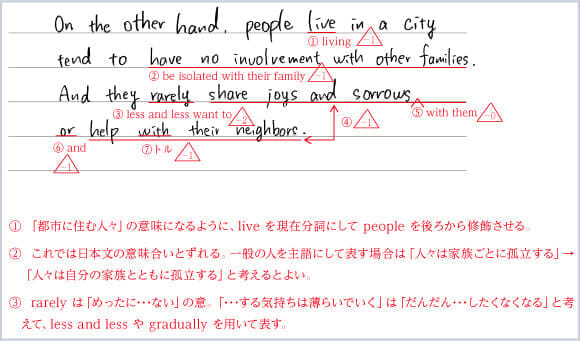 On the other hand, people live in a city
① living -1
tend to have no involvement with other families.
② be isolated with their family -1
And they rarely share joys and sorrows
③ less and less want to -2 ④ -1 ⑤ with them -0
or help with their neighbors.
⑥ and -1 ⑦トル -1
① 「都市に住む人々」の意味になるように、live を現在分詞にして people を後ろから修飾させる。
② これでは日本文の意味合いとずれる。一般の人を主語にして表す場合は「人々は家族ごとに孤立する」→
「人々は自分の家族とともに孤立する」と考えるとよい。
③ rarely は「めったに･･･ない」の意。「･･･する気持ちは薄らいでいく」は「だんだん･･･したくなくなる」と考
えて、less and less や gradually を用いて表す。